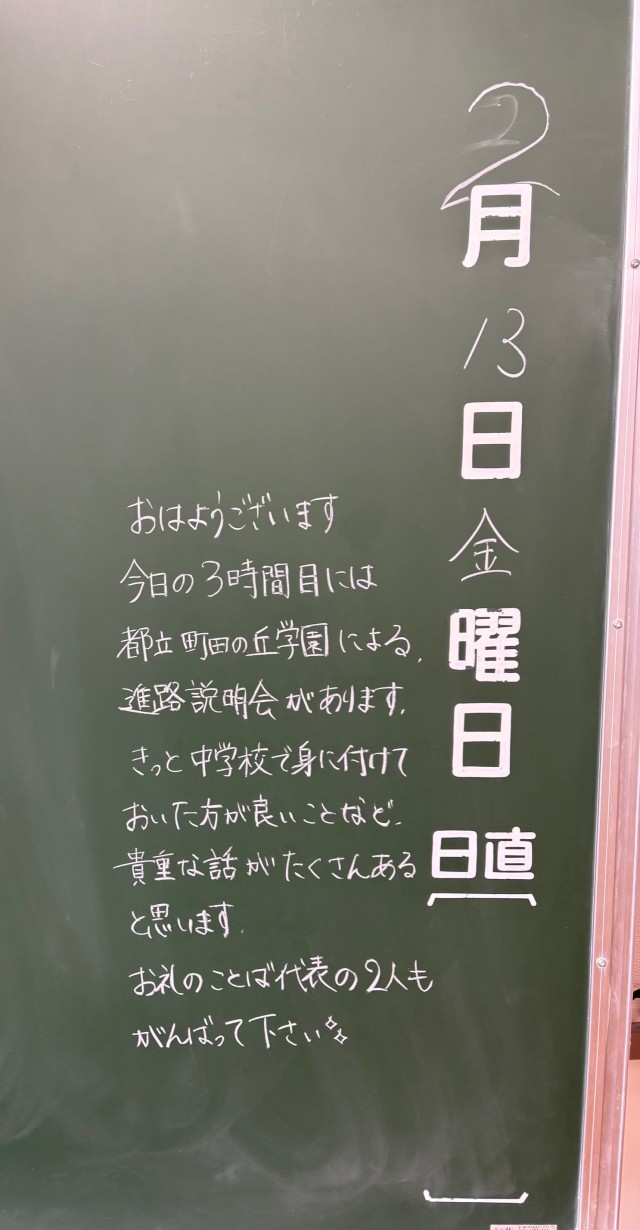 2月13日金曜日
日直
おはようございます
今日の3時間目には
都立町田の丘学園による、
進路説明会があります。
きっと中学校で身に付けて
おいた方が良いことなど、
貴重な話がたくさんある
と思います。
お礼のことば代表の2人も
がんばって下さい